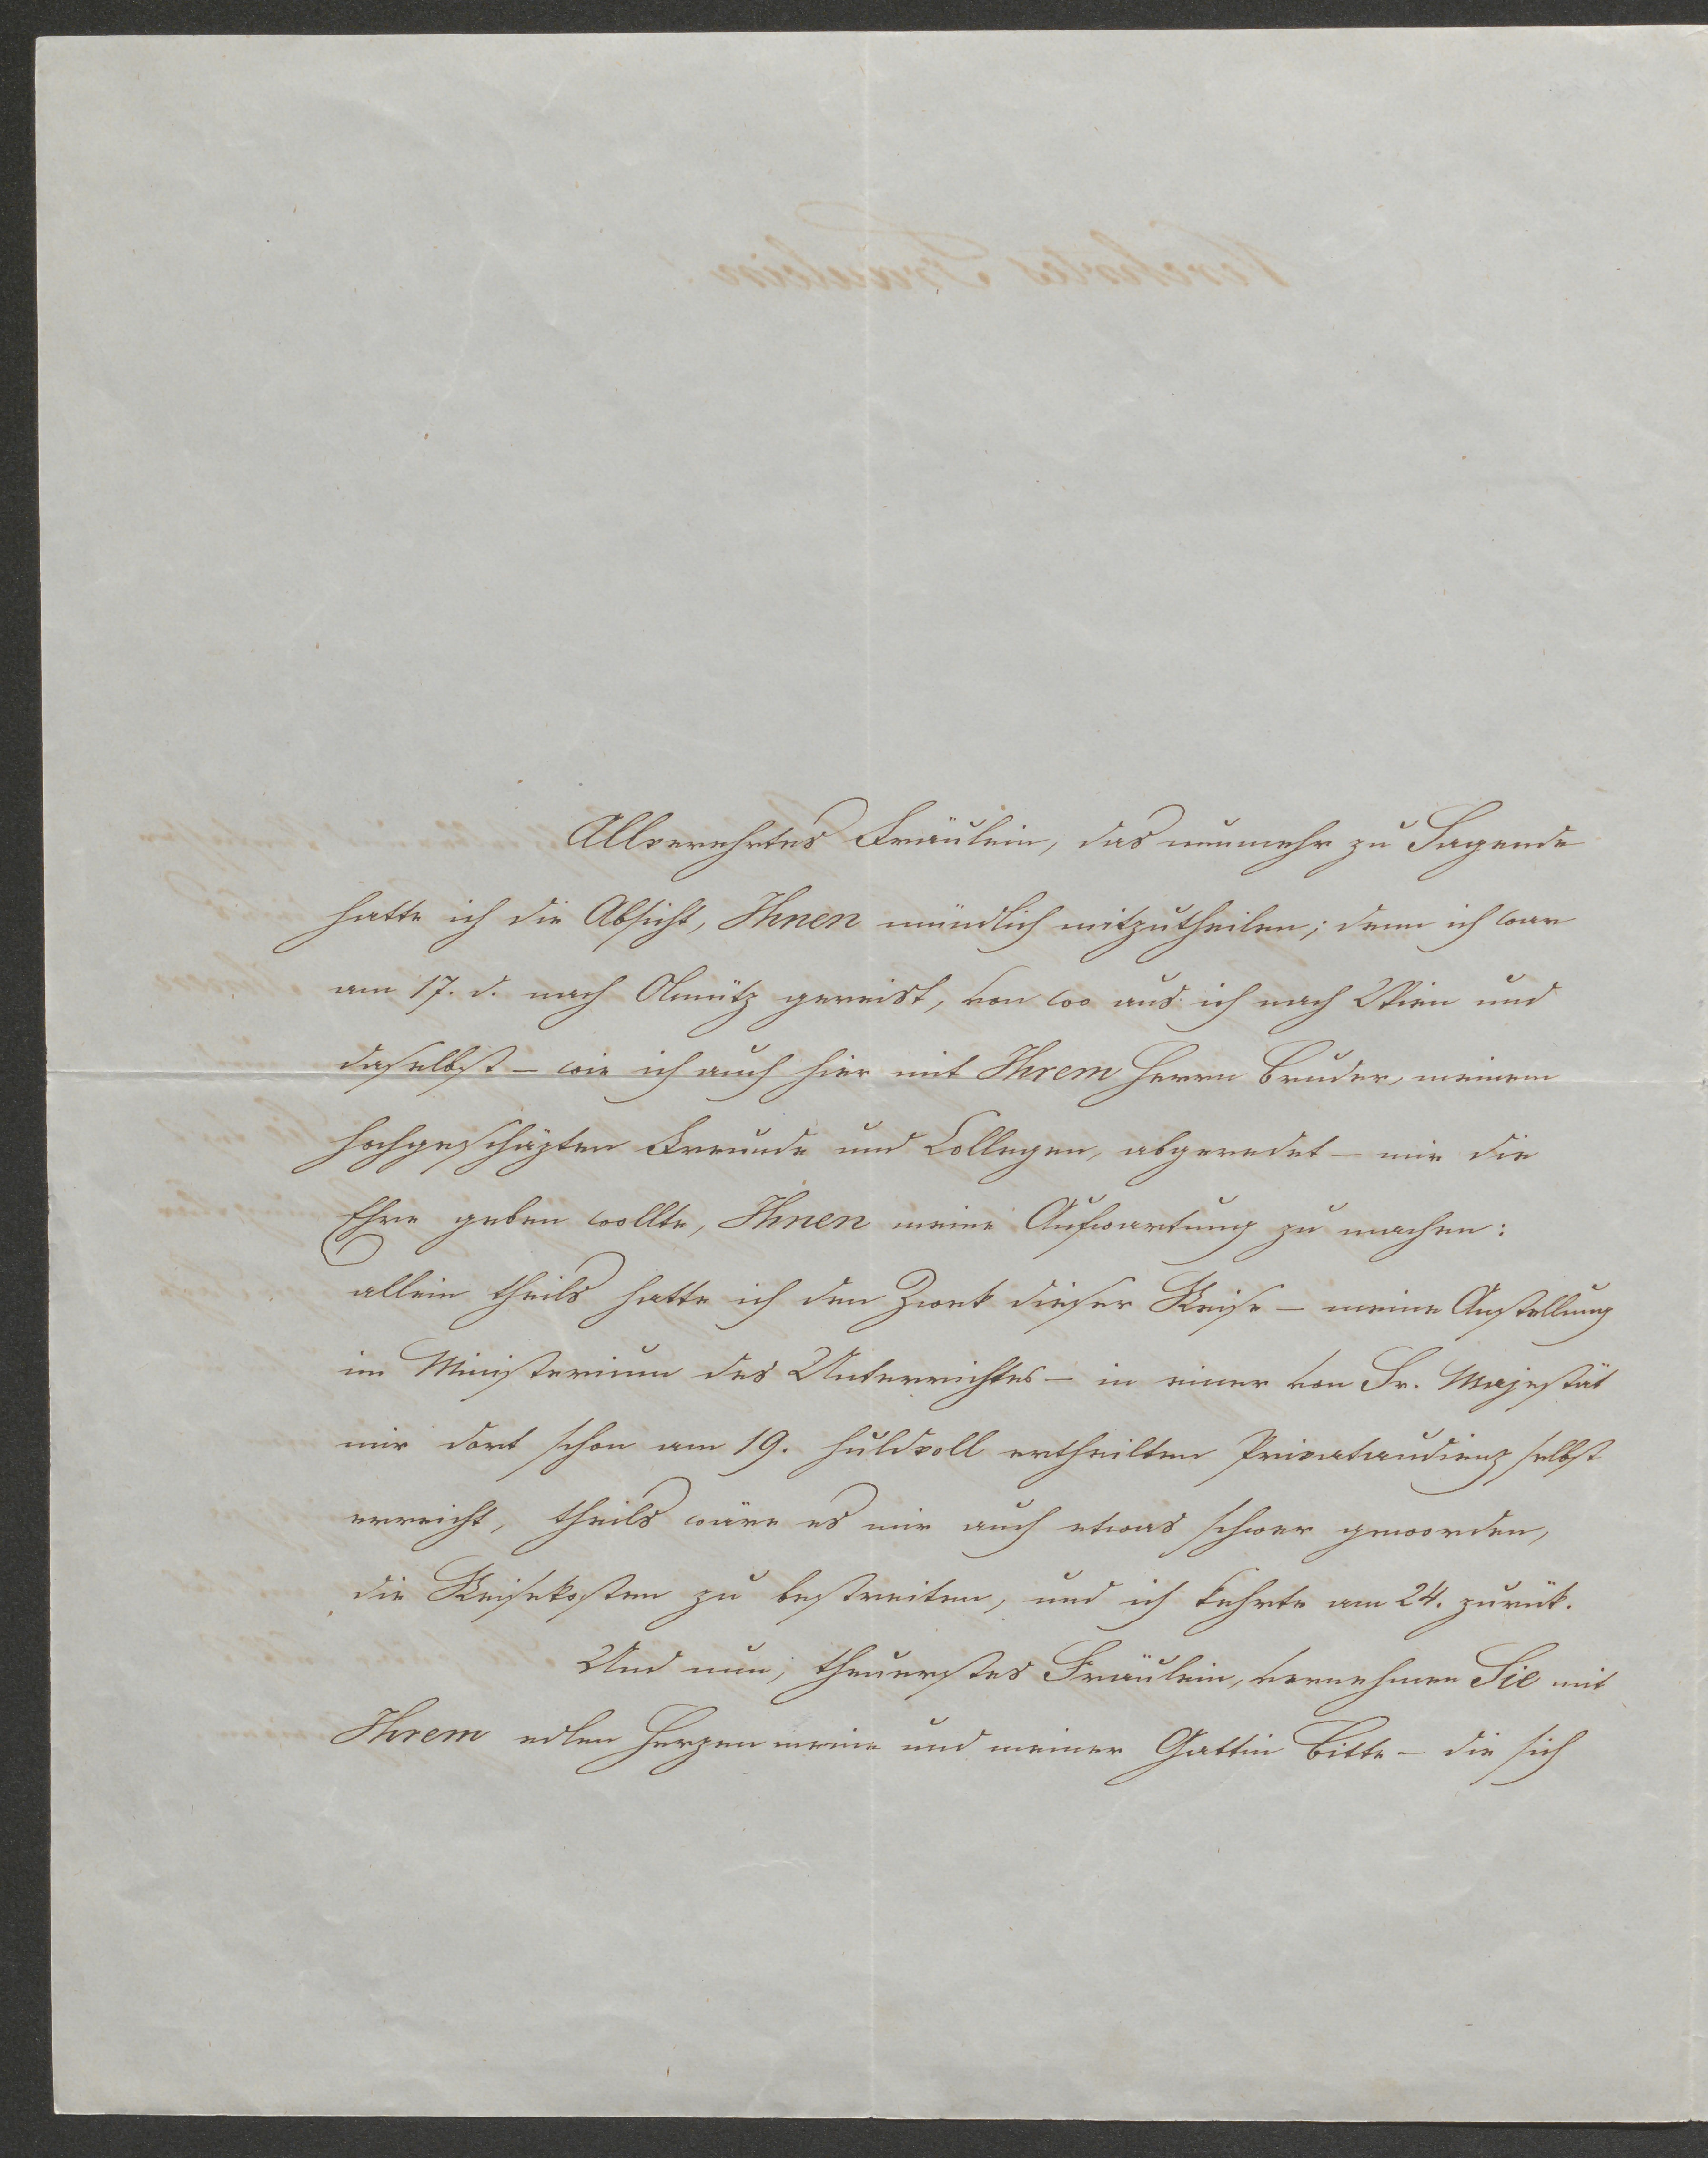 Allverehrtes Fräulein, das nunmehr zu Sagende
hatte ich die Absicht, Ihnen mündlich mitzutheilen; denn ich war
am 17. d. nach Olmütz gereist, von wo aus ich nach Wien und
daselbst – wie ich auch hier mit Ihrem Herrn Bruder, meinem
hochgeschäzten Freunde und Collegen, abgeredet – mir die
Ehre geben wollte, Ihnen meine Aufwartung zu machen:
allein theils hatte ich den Zwek dieser Reise – meine Anstellung
im Ministerium des Unterrichtes – in einer von Sr. Majestät
mir dort schon am 19. huldvoll ertheilten Privataudienz selbst
erreicht, theils wäre es mir auch etwas schwer geworden,
die Reisekosten zu bestreiten, und ich kehrte am 24. zurük.
Und nun, theuerstes Fräulein, vernehmen Sie mit
Ihrem edlen Herzen meine und meiner Gattin Bitte – die sich